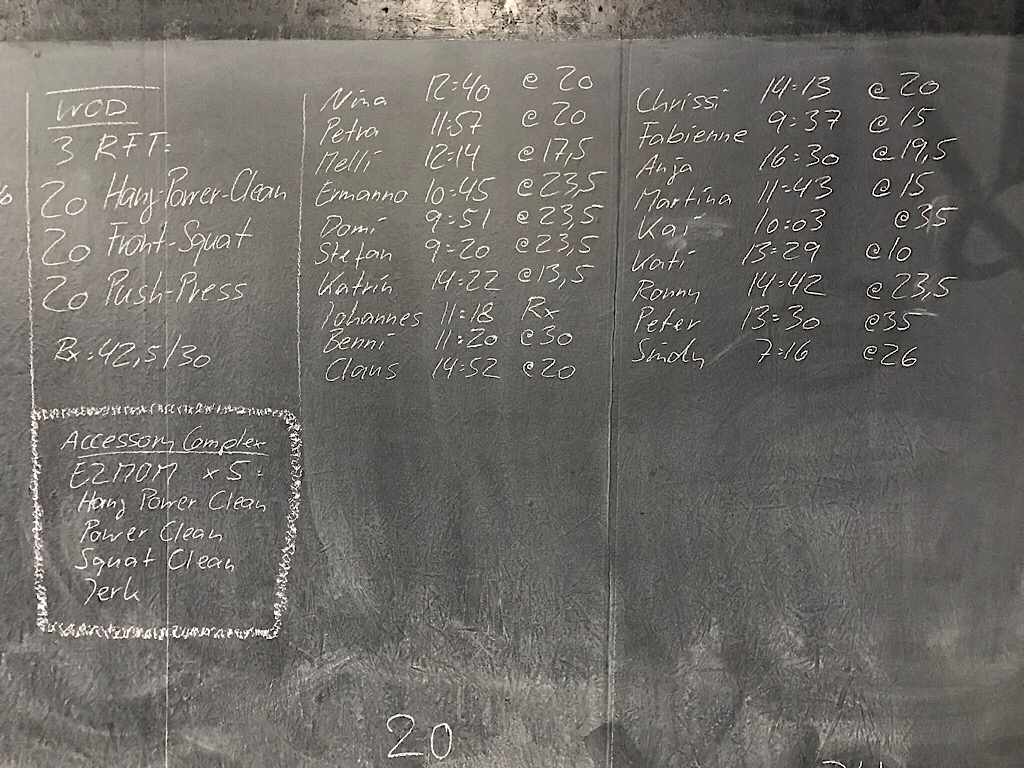 WOD
3 RFT:
20 Hang-Power-Clean
20 Front-Squat
20 Push-Press
Rx: 42,5/30
Accessory Complex
E2MOM x 5:
Hang Power Clean
Power Clean
Squat Clean
Jerk
Nina 12:40 @ 20
Petra 11:57 @ 20
Melli 12:14 @ 17,5
Ermanno 10:45 @ 23,5
Domi 9:51 @ 23,5
Stefan 9:20 @ 23,5
Katrin 14:22 @ 13,5
Johannes 11:18 Rx
Benni 11:20 @ 30
Claus 14:52 @ 20
Chrissi 14:13 @ 20
Fabienne 9:37 @ 15
Anja 16:30 @ 19,5
Martina 11:43 @ 15
Kai 10:03 @ 35
Kati 13:29 @ 10
Ronny 14:42 @ 23,5
Peter 13:30 @ 35
Sindy 7:16 @ 26
20